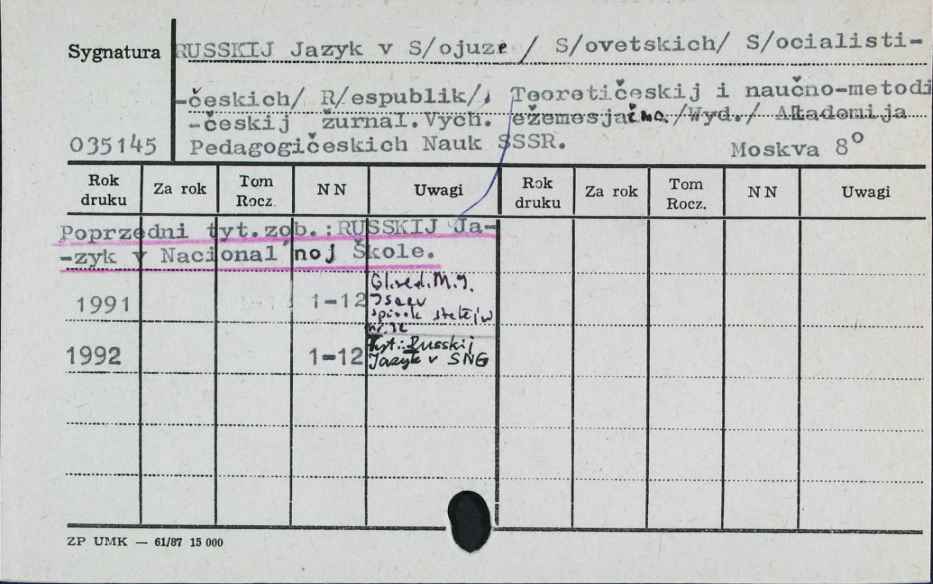 Sygnatura
RUSSKIJ Jazyk v S/ojuze / S/ovetskich/ S/ocialisti-
-českich/ R/espublik/, Teoretičeskij i naučno-metodi
-českij žurnal.Vych. ežemesjačno./Wyd./ Akademija
035145 Pedagogičeskich Nauk SSSR. Moskva 8°
Rok druku Za rok Tom Rocz. N N Uwagi Rok druku Za rok Tom Rocz. N N Uwagi
Poprzedni tyt.zob.:RUSSKIJ Ja-
-zyk v Nacional'noj Škole.
1991 1-12 Gl.red.M.I.
Isaev
spisok statejw
nr.12
1992 1-12 Tyt.: Russkij
Jazyk v SNG
ZP UMK — 61/87 15 000